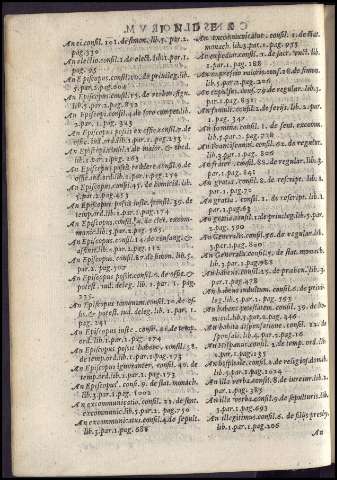 CONSILIORUM.
An ei. consil. 101. de simon. lib. 5. par. 2.
pag. 330
An electio. consil. 1. de elect. lib. 1. par. 1.
pag. 95
An Episcopus. consil. 10. de priuileg. lib.
5. par. 2. pag. 604
An Episcopus. consil. 75. de verbor. sign.
lib. 5. par. 2. pag. 852
An Episcopi consil. 4. de foro compet. lib.
2. par. 1. pag. 323
An Episcopus possit ex offic. consil. 7. de
offic. ind. ord. lib. 1. par. 2. pag. 253
An Episcopi consil. 2. de maior. & obed.
lib. 1. par. 2. pag. 263
An Episcopus possit reddere. consil. 9. de
offic. ind. ord. lib. 1. par. 2. pag. 254
An Episcopus consil. 45. de homicid. lib.
5. par. 2. pag. 453
An Episcopus possit iuste. consil. 39. de
temp. ord. lib. 1. par. 1. pag. 174
An Episcopus consil. de cler. excom-
munic. lib. 5. par. 2. pag. 565.
An Episcopus consil. 14. de
lib. 5. par. 2. pag. 115
An Episcopus. consil. 87. de simon. lib. 5.
par. 2. pag. 307
An Episcopus possit. consil. 2. de offic. &
potest. iud. deleg. lib. 1. par. 1. pag.
235.
An Episcopus tantum. consil. 10. de of-
fic. & potest. iud. deleg. lib. 1. par. 1.
pag. 241
An Episcopus iuste. consil. 41. de temp.
ord. lib. 1. par. 1. pag. 174
An Episcopus posset habere. consil. 38.
de temp. ord. lib. 1. par. 1. pag. 173
An Episcopus ignoranter. consil. 40. de
temp. ord. lib. 1. par. 1. pag. 173
An Episcopus. cons. 9. de stat. monach.
lib. 3. par. 1. pag. 1002
An excommunicatio. consil. 22. de sent.
excommunic. lib. 5. par. 2. pag. 750
An excommunicatus. consil. 4. de sepult.
lib. 3. par. 1. pag. 688
An excommunicatus. consil. 1. de stat.
monach. lib. 3. par. 1. pag. 953
An expediat. consil. 1. de pact. lib.
1. par. 1. pag. 288
An expressio maior. consil. 26. de simon.
lib. 5. par. 2. pag.
An expulsus. consil. 79. de regular. lib. 3.
par. 1. pag. 831
An famuli. consil. 2. de feriis. lib. 2. par.
1. pag. 347
An foemina. consil. 1. de sent. excom.
lib. 5. par. 2. pag. 778
An franciscani. consil. 2. de regular. lib.
3. par. 1. pag. 766
An frater. consil. 88. de regular. lib. 3.
par. 1. pag. 841
An gratia. consil. 8. de rescript. lib. 1.
par. 1. pag. 70
An gratia. consil. 1. de rescript. lib. 1.
par. 1. pag. 63
An gratia. consil. 1. de priuileg. lib. 5. par.
2. pag. 590
An Generalis consil. 36. de regular. lib.
3. par. 1. pag. 800
An Generalis consil. 5. de stat. monach.
lib. 3. par. 1. pag. 985
An habens. consil. 25. de praeben. lib. 3.
par. 1. pag. 478
An habens indultum. consil. 6. de priui-
leg. lib. 5. par. 2. pag. 593
An habens potestatem. consil. 39. de ho-
micid. lib. 5. par. 2. pag. 446
An habita dispensatione. consil. 22. de
sponsal. lib. 4. par. 2. pag. 16
An hispanus. consil. 2. de temp. ord. lib.
1. par. 1. pag. 135
An hospitale. consil. 2. de relig. lib.
3. par. 1. pag. 1024
An illa verba. consil. 8. de lib. 2.
par. 1. pag. 385
An illa verba. consil. 9. de sepulturis. lib.
3. par. 1. pag. 693
An illegitimus. consil. 6. de filijs presby.
lib. 1. par. 1. pag. 206
An